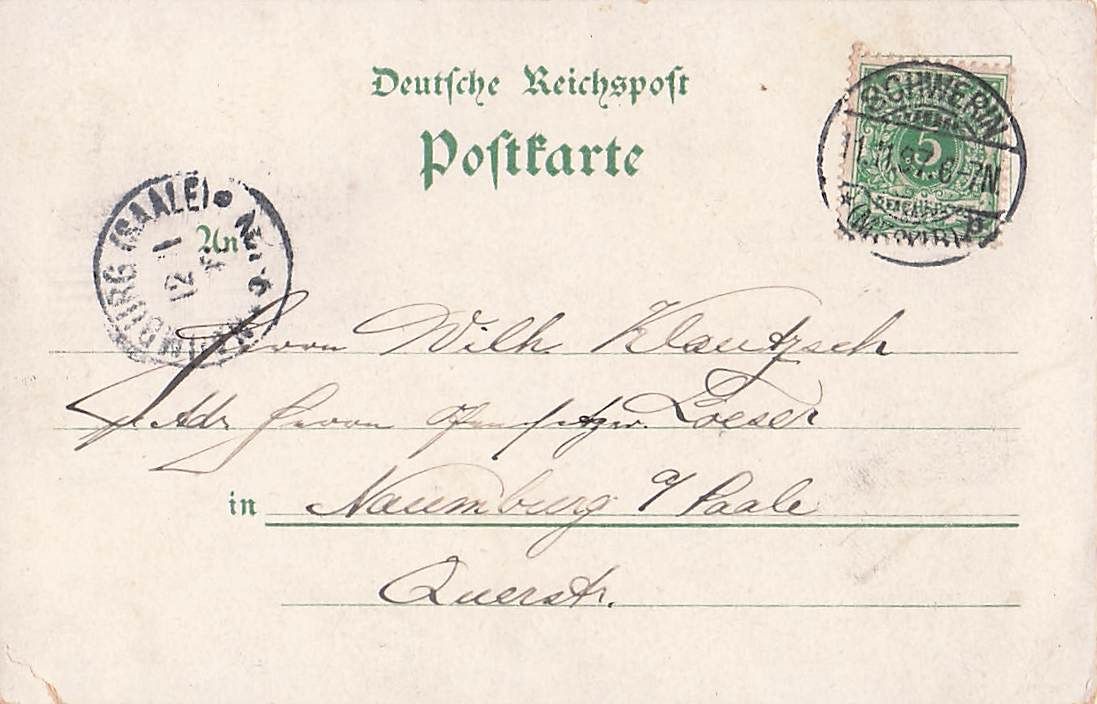 Deutsche Reichspost
Postkarte
5
SCHWERIN
11.11.97. 6-7N
NAUMBURG (SAALE)
12 11
An
Herrn Wilh. Klautzsch
p. Adr. Herrn Loeser
in Naumburg a/Saale
Querstr.